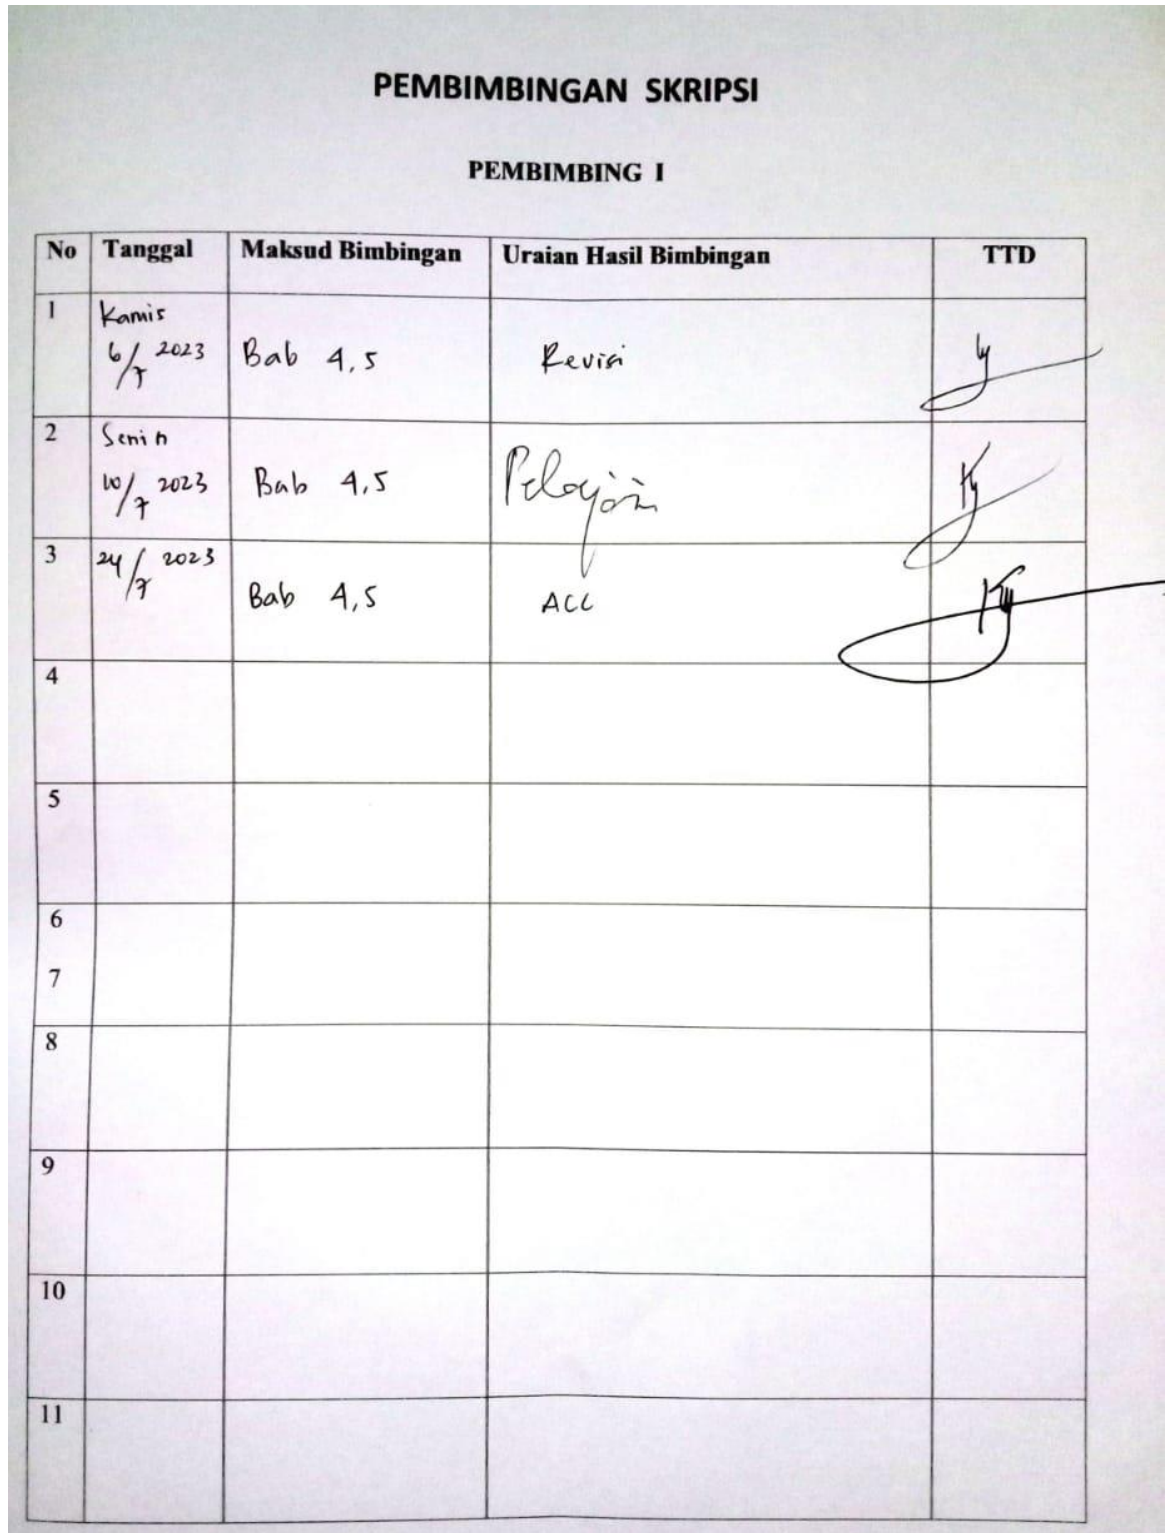 PEMBIMBINGAN SKRIPSI
PEMBIMBING I
No Tanggal Maksud Bimbingan Uraian Hasil Bimbingan TTD
1 Kamis
6/7 2023 Bab 4,5 Revisi
2 Senin
10/7 2023 Bab 4,5 Pelajari
3 24/7 2023
Bab 4,5 ACC
4
5
6
7
8
9
10
11